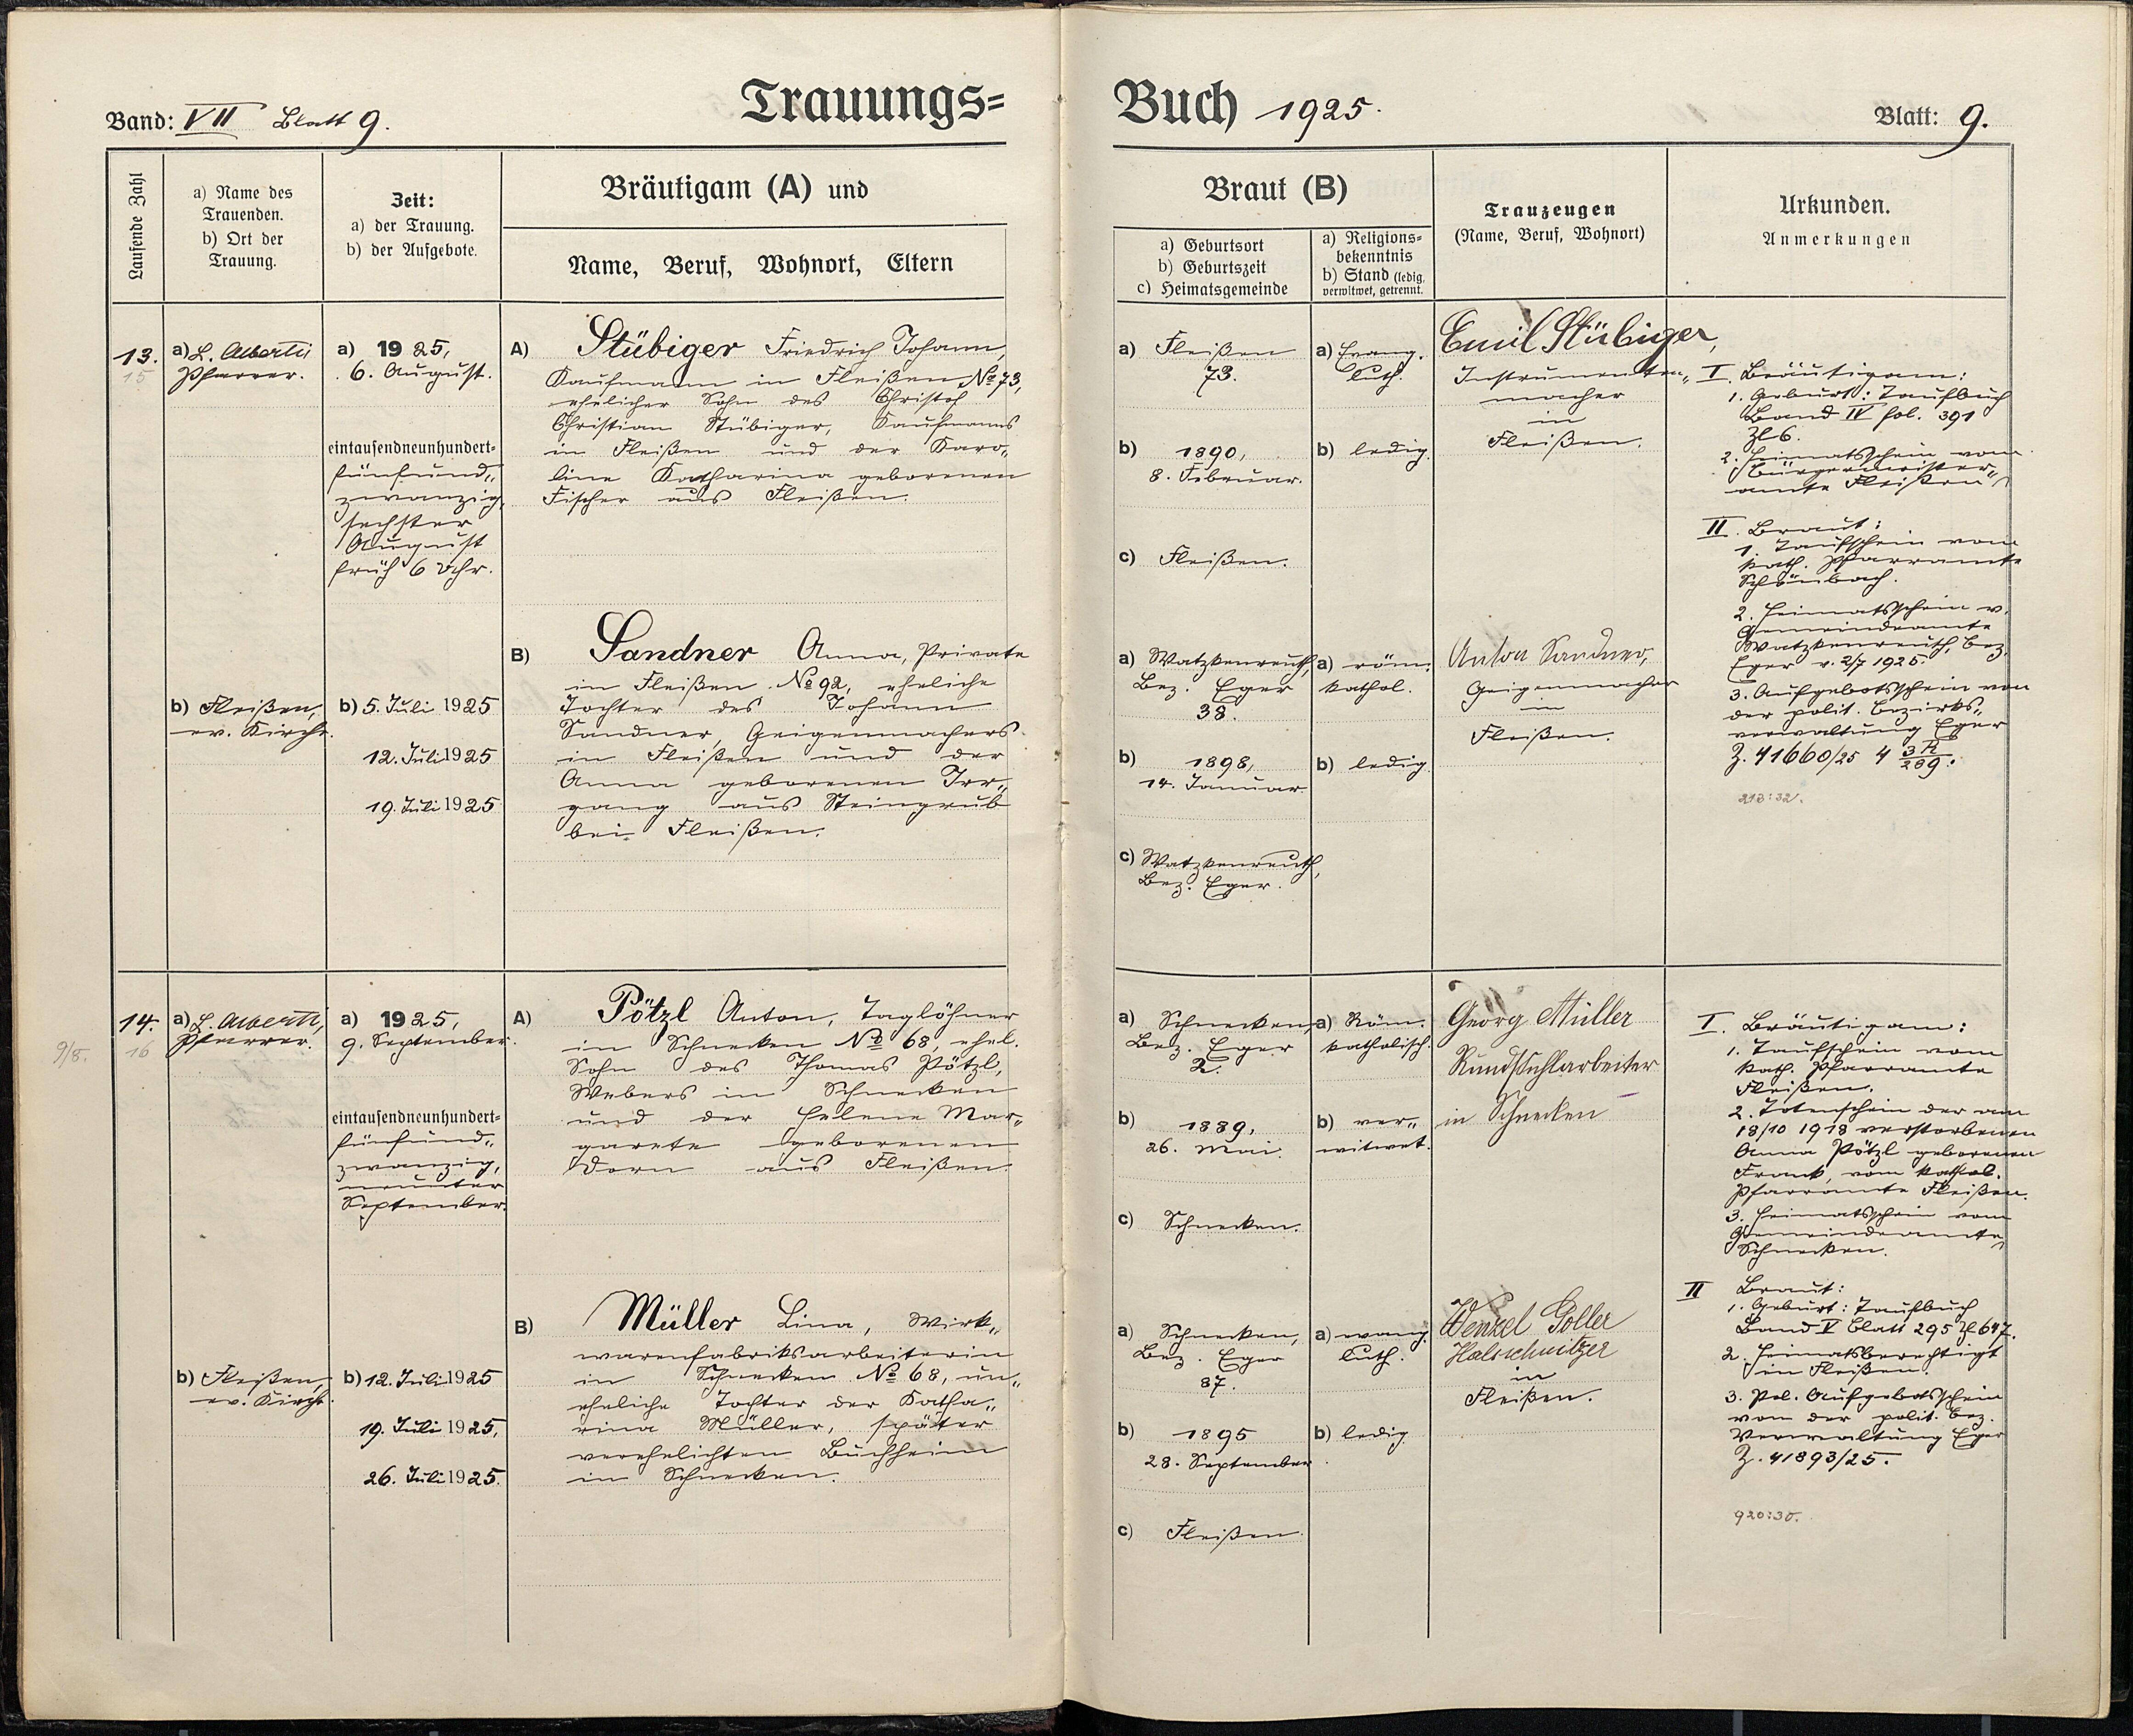 Band: VII Blatt 9.
Trauungs=
Laufende Zahl
a) Name des
Trauenden.
b) Ort der
Trauung.
Zeit:
a) der Trauung.
b) der Aufgebote.
Bräutigam (A) und
Name, Beruf, Wohnort, Eltern
13.
15
a) L. Alberti
Pfarrer.
a) 1925,
6. August.
eintausendneunhundert=
fünfund„
zwanzig,
sechster
August
früh 6 Uhr.
A) Stübiger Friedrich Johann,
Kaufmann in Fleißen No 73,
ehelicher Sohn des Christof
Christian Stübiger, Kaufmanns
in Fleißen und der Karo„
line Katharina geborenen
Fischer aus Fleißen.
B) Sandner Anna, Private
in Fleißen No 92, eheliche
Tochter des Johann
Sandner, Geigenmachers
in Fleißen und der
Anna geborenen Irr„
gang aus Steingrub
bei Fleißen.
b) Fleißen,
ev. Kirche.
b) 5. Juli 1925
12. Juli 1925
19. Juli 1925
9/8.
14.
16
a) L. Alberti,
Pfarrer.
a) 1925,
9. September.
eintausendneunhundert=
fünfund„
zwanzig,
neunter
September.
A) Pötzl Anton, Taglöhner
in Schnecken No 68, ehel.
Sohn des Thomas Pötzl,
Webers in Schnecken
und der Helene Mar„
garete geborenen
Dorn aus Fleißen.
B) Müller Lina, Wirk„
warenfabriksarbeiterin
in Schnecken No 68, un„
eheliche Tochter der Katha„
rina Müller, später
verehelichten Buchheim
in Schnecken.
b) Fleißen,
ev. Kirche.
b) 12. Juli 1925
19. Juli 1925,
26. Juli 1925.
Buch 1925.
Blatt: 9.
Braut (B)
a) Geburtsort
b) Geburtszeit
c) Heimatsgemeinde
a) Religions=
bekenntnis
b) Stand (ledig,
verwitwet, getrennt.
Trauzeugen
(Name, Beruf, Wohnort)
Urkunden.
Anmerkungen
a) Fleißen
73.
b) 1890,
8. Februar.
c) Fleißen.
a) Evang.
luth.
b) ledig.
Emil Stübiger,
Instrumenten„
macher
in
Fleißen.
I. Bräutigam:
1. Geburt: Taufbuch
Band IV fol. 391
Zl 6.
2. Heimatsschein vom
Bürgermeister„
amte Fleißen
II. Braut:
1. Taufschein vom
kath. Pfarramte
Schönbach.
2. Heimatsschein v.
Gemeindeamte
Watzkenreuth, Bez.
Eger v. 2/7 1925.
3. Aufgebotsschein von
der polit. Bezirks„
verwaltung Eger
Z. 41660/25 4 3R/289.
213:32.
a) Watzkenreuth,
Bez. Eger
38.
b) 1898,
14. Januar
c) Watzkenreuth,
Bez. Eger.
a) röm.
kathol.
b) ledig.
Anton Sandner,
Geigenmacher
in
Fleißen.
a) Schnecken,
Bez. Eger
2.
b) 1889,
26. Mai.
c) Schnecken.
a) Röm.
katholisch.
b) ver„
witwet.
Georg Müller
Rundstuhlarbeiter
in Schnecken
I. Bräutigam:
1. Taufschein vom
kath. Pfarramte
Fleißen.
2. Totenschein der am
18/10 1918 verstorbenen
Anna Pötzl geborenen
Frank, vom kathol.
Pfarramte Fleißen.
3. Heimatsschein vom
Gemeindeamte
Schnecken.
II Braut:
1. Geburt: Taufbuch
Band V Blatt 295 Zl 647.
2. Heimatsberechtigt
in Fleißen.
3. Pol. Aufgebotsschein
von der polit. Bez.
Verwaltung Eger
Z. 41893/25.
920:30.
a) Schnecken,
Bez. Eger
87.
b) 1895
28. September
c) Fleißen.
a) evang.
luth.
b) ledig.
Wenzel Goller
Halsschnitzer
in
Fleißen.